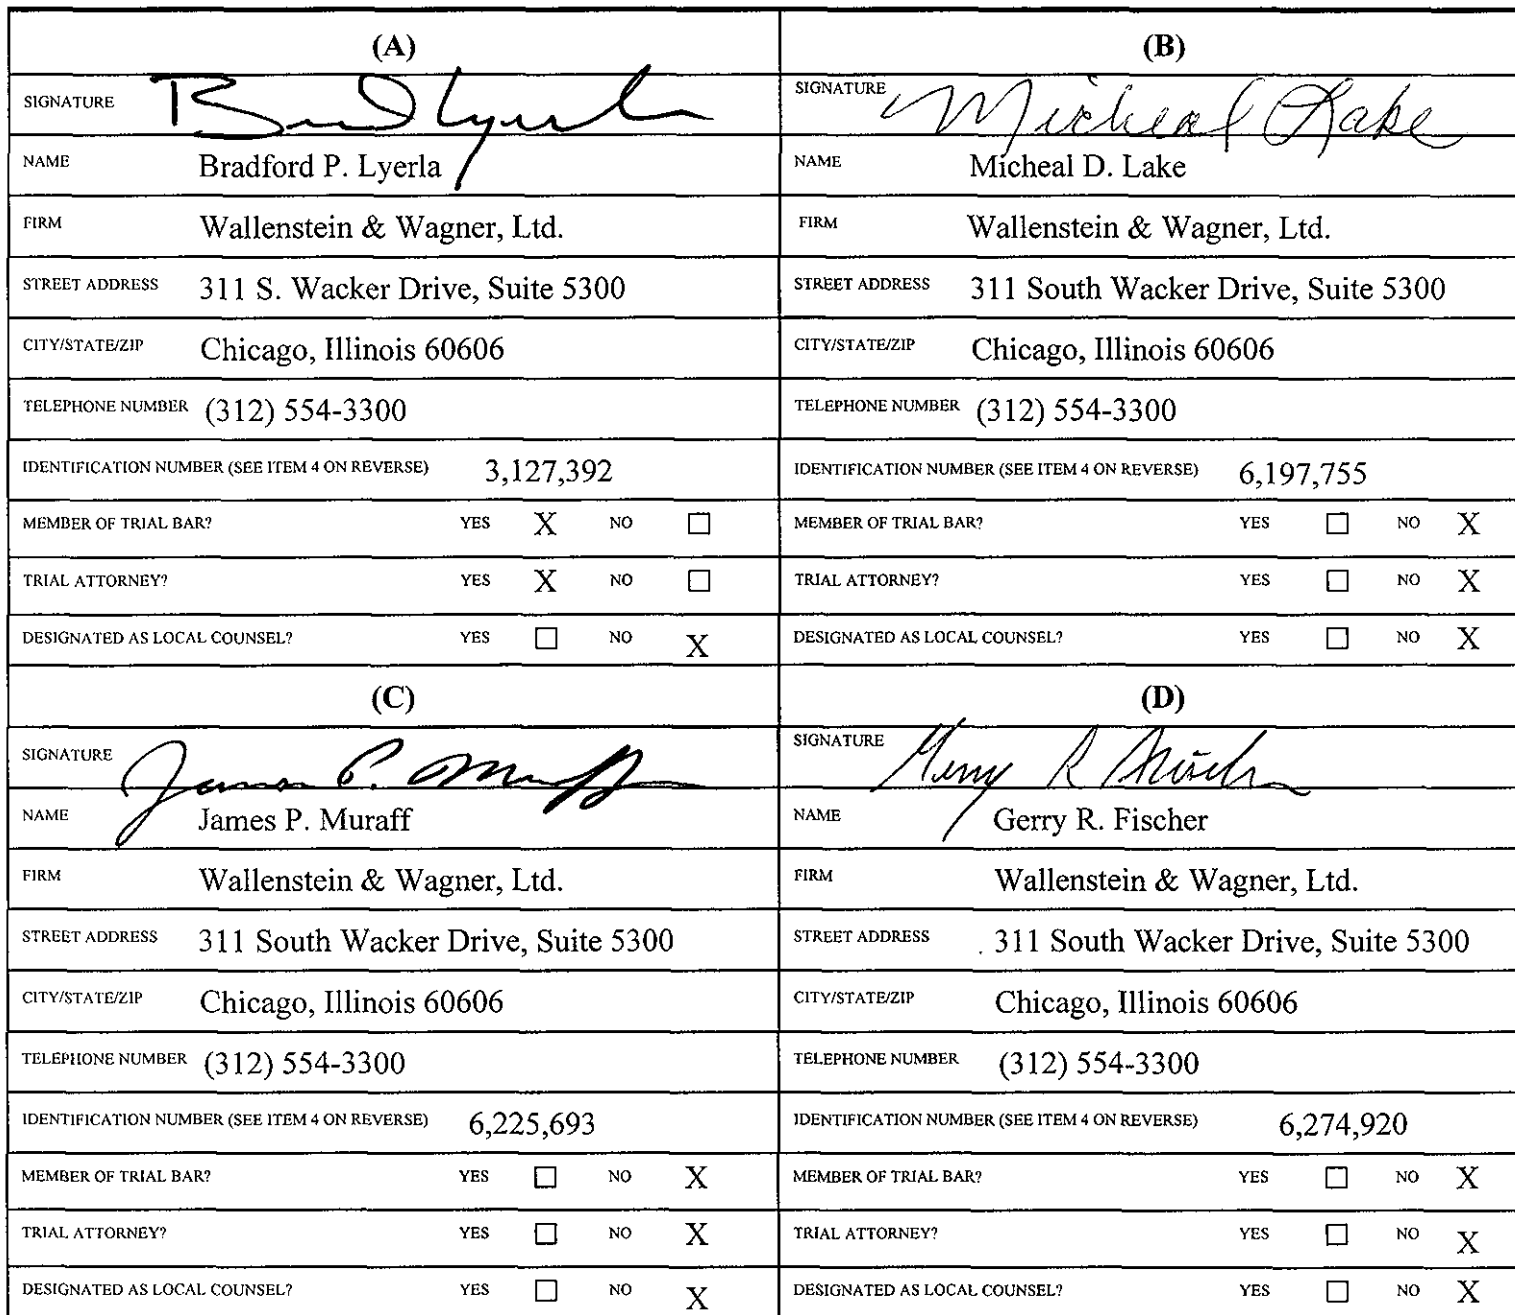 (A)
SIGNATURE Brad Lyerla
NAME Bradford P. Lyerla
FIRM Wallenstein & Wagner, Ltd.
STREET ADDRESS 311 S. Wacker Drive, Suite 5300
CITY/STATE/ZIP Chicago, Illinois 60606
TELEPHONE NUMBER (312) 554-3300
IDENTIFICATION NUMBER (SEE ITEM 4 ON REVERSE) 3,127,392
MEMBER OF TRIAL BAR? YES X NO ☐
TRIAL ATTORNEY? YES X NO ☐
DESIGNATED AS LOCAL COUNSEL? YES ☐ NO X
(B)
SIGNATURE Micheal Lake
NAME Micheal D. Lake
FIRM Wallenstein & Wagner, Ltd.
STREET ADDRESS 311 South Wacker Drive, Suite 5300
CITY/STATE/ZIP Chicago, Illinois 60606
TELEPHONE NUMBER (312) 554-3300
IDENTIFICATION NUMBER (SEE ITEM 4 ON REVERSE) 6,197,755
MEMBER OF TRIAL BAR? YES ☐ NO X
TRIAL ATTORNEY? YES ☐ NO X
DESIGNATED AS LOCAL COUNSEL? YES ☐ NO X
(C)
SIGNATURE James P. Muraff
NAME James P. Muraff
FIRM Wallenstein & Wagner, Ltd.
STREET ADDRESS 311 South Wacker Drive, Suite 5300
CITY/STATE/ZIP Chicago, Illinois 60606
TELEPHONE NUMBER (312) 554-3300
IDENTIFICATION NUMBER (SEE ITEM 4 ON REVERSE) 6,225,693
MEMBER OF TRIAL BAR? YES ☐ NO X
TRIAL ATTORNEY? YES ☐ NO X
DESIGNATED AS LOCAL COUNSEL? YES ☐ NO X
(D)
SIGNATURE Gerry R Fischer
NAME Gerry R. Fischer
FIRM Wallenstein & Wagner, Ltd.
STREET ADDRESS 311 South Wacker Drive, Suite 5300
CITY/STATE/ZIP Chicago, Illinois 60606
TELEPHONE NUMBER (312) 554-3300
IDENTIFICATION NUMBER (SEE ITEM 4 ON REVERSE) 6,274,920
MEMBER OF TRIAL BAR? YES ☐ NO X
TRIAL ATTORNEY? YES ☐ NO X
DESIGNATED AS LOCAL COUNSEL? YES ☐ NO X